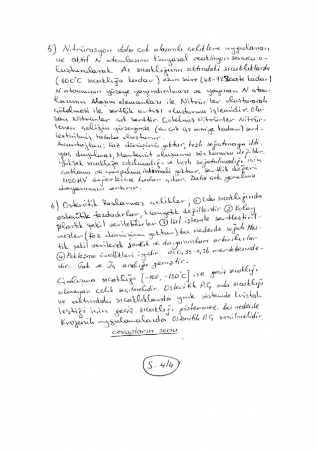 5) Nitrürasyon daha çok alaşımlı çeliklere uygulanan
ve aktif N atomlarını kimyasal reaksiyon sonucu o-
luşturularak Ac sıcaklığının altındaki sıcaklıklarda
(600°C sıcaklığa kadar) uzun süre (48-72 saate kadar)
N atomunun yüzeye yayındırılması ve yayınan N atom-
larının Alaşım elemanları ile Nitrürler oluşturarak
çökelmesi ile sertlik artışı oluşturma işlemidir. Olu-
şan Nitrürler çok serttir. Çökelmiş Nitrürler Nitrür-
lenen çeliğin yüzeyinde sert-
leştirilmiş tabaka oluşturur.
Avantajları: Faz dönüşümü yoktur, hızlı soğutmaya ihti-
yaç duyulmaz, Martenzit oluşumu söz konusu değildir,
Yüksek sıcaklığa çıkılmadığı ve hızlı soğutulmadığı için
çatlama ve çarpılma yoktur, Sertlik değeri
1100HV değerlerine kadar çıkar. Daha çok yorulma
dayanımını arttırır.
6) Ostenitik Paslanmaz çelikler; ① Oda sıcaklığında
ostenitik fazdadırlar, Manyetik değillerdir ② Kolay
plastik şekil verilebilirler ③ Isıl işlemle sertleştiril-
mezler (faz dönüşümü yoktur) bu nedenle soğuk Plas-
tik şekil verilerek sertlik ve dayanımları arttırılırlar
④ Pekleşme özellikleri iyidir. n=0,35-0,36 mertebesinde-
dir. ve Üç aralığı geniştir.
Çalışma sıcaklığı (-100, -120°C) ise geçiş sıcaklığı
olmayan çelik seçilmelidir. Ostenitik P.Ç oda sıcaklığı
ve altındaki sıcaklıklarda ymk sistemde kristal-
leştiği için geçiş sıcaklığı göstermez. bu nedenle
Krojenik uygulamalarda Ostenitik P.Ç seçilmelidir.
cevapların sonu
S. 4/4